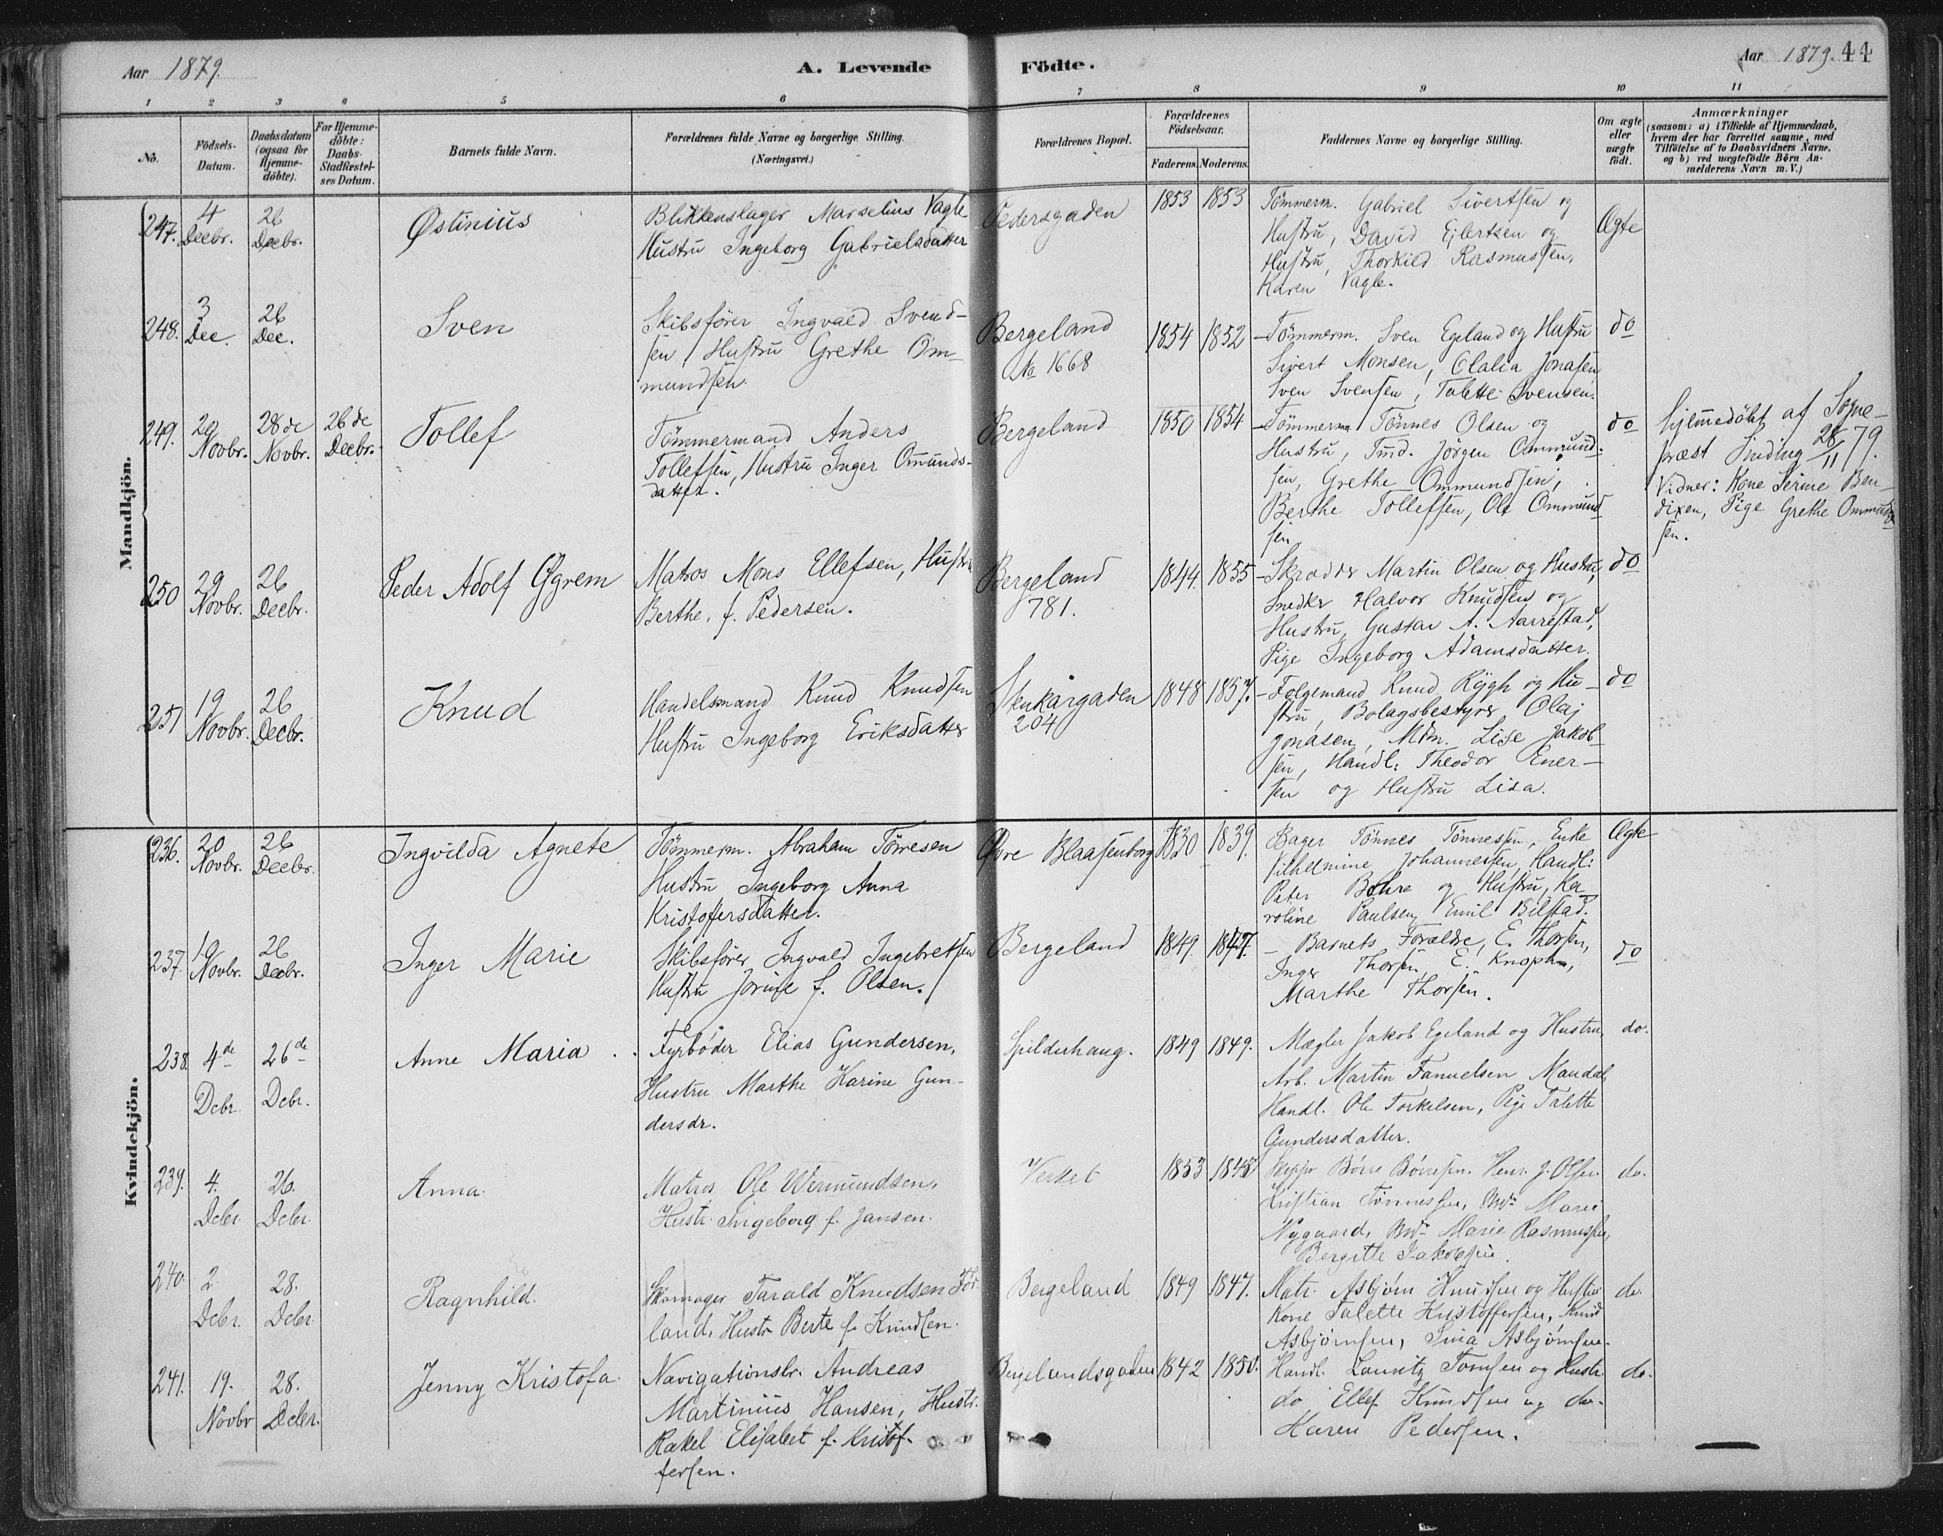 Aar 1879. A. Levende Födte. Aar 1879. 44
1 2 3 4 5 6 7 8 9 10 11
No.
Födsels-Datum.
Daabsdatum (ogsaa for Hjemme-döbte).
For Hjemme-döbte: Daabs-Stadfæstel-ses Datum.
Barnets fulde Navn.
Forældrenes fulde Navne og borgerlige Stilling.
(Næringsvei.)
Forældrenes Bopæl.
Forældrenes Födselsaar.
Faderens. Moderens.
Faddernes Navne og borgerlige Stilling.
Om ægte eller uægte födt.
Anmærkninger
(saasom: a) i Tilfælde af Hjemmedaab,
hvem der har forrettet samme, med
Tilföielse af to Daabsvidners Navne,
og b) ved uægtefödte Börn An-
melderens Navn m. V.)
Mandkjön.
247. 4 Decbr. 26 Decbr. Østinius
Blikkenslager Marselius Vagle
Hustru Ingeborg Gabrielsdatter
Pedersgaden 1853 1853
Tømmerm. Gabriel Sivertsen og
Hustru, David Ejlertsen og
Hustru, Thorkild Rasmussen,
Karen Vagle.
Ægte
248. 3 Dec. 26 Dec. Sven
Skibsfører Ingvald Svend-
sen, Hustru Grethe Om-
mundsen
Bergeland
No 1668
1854 1852
Tømmerm. Sven Egeland og Hustru
Sivert Monsen, Olalia Jonasen
Sven Svensen, Talette Svensen.
do
249. 20 Novbr. 28de Novbr. 26de Decbr. Tollef
Tømmermand Anders
Tollefsen, Hustru Inger Omunds-
datter.
Bergeland 1850 1854
Tømmerm Tønnes Olsen og
Hustru, Tmd. Jörgen Ommund-
sen, Grethe Ommundsen,
Berthe Tollefsen, Ole Ommund-
sen
do
Hjemmedöbt af Sogne-
præst Sinding 28/11 79.
Vidner: Kone Serine Ben-
dixen, Pige Grethe Ommund-
sen.
250 29 Novbr. 26 Decbr. Peder Adolf Ygrem
Matros Mons Ellefsen, Hustru
Berthe, f. Pedersen.
Bergeland
781.
1844. 1855
Skrædder Martin Olsen og Hustru,
Snedker Halvor Knudsen og
Hustru, Gustav A. Aarrestad,
Pige Ingeborg Adamsdatter.
do
251 19 Novbr. 26 Decbr. Knud
Handelsmand Knud Knudsen
Hustru Ingeborg Eriksdatter
204
1848 1857.
Følgemand Knud Rygh og Hu-
stru, Bolagsbestyrer Olaj
Jonasen, Mdm. Lise Jakob-
sen, Handl: Theodor Ener-
sen og Hustru Lisa.
do
Kvindekjön.
236. 20 Novbr. 26 Decbr. Ingvilda Agnete
Tømmerm. Abraham Tørresen
Hustru Ingeborg Anna
Kristoffersdatter.
Øvre Blaasenborg 1830 1839.
Bager Tønnes Tønnessen, Enke
Vilhelmine Johannessen, Handl:
Peter Bohre og Hustru, Ka
roline Paulsen, Emil Bilstad.
Ægte
237. 19 Novbr. 26 Decbr. Inger Marie
Skibsfører Ingvald Ingebretsen
Hustru Jorine f. Olsen.
Bergeland 1849. 1847.
Barnets Forældre, E. Thorsen,
Inger Thorsen, E. Knoph,
Marthe Thorsen.
do
238 4de Dcbr. 26de Dcbr. Anne Maria
Fyrbøder Elias Gundersen,
Hustru Marthe Karine Gun-
dersdr.
Spilderhaug. 1849 1849.
Mægler Jakob Egeland og Hustru,
Arb. Martin Fanuelsen Mandal,
Handl. Ole Torkelsen, Pige Talette
Gundersdatter.
do.
239. 4. Dcbr. 26. Dcbr. Anna.
Matros Ole Wermundsen,
Hustr. Ingeborg f. Jansen.
Verket 1853 1848
Skippr Börre Börresen. Henr. J. Olsen
Kristian Tønnessen, Md. Marie
Nygaard, Md. Marie Rasmussen,
Bergitte Jakobsen.
do.
240. 2 Dcbr. 28. Dcbr. Ragnhild.
Skomager Tarald Knudsen För
land, Hustr Berte f. Knudsen.
Bergeland 1849 1847.
Matr. Asbjörn Knudsen og Hustru
Kone Talette Kristoffersen, Knud
Asbjörnsen, Sina Asbjörnsen.
do.
241. 19. Novbr 28. Dcbr. Jenny Kristofa.
Navigationslr. Andreas
Martinius Hansen, Hustr.
Rakel Elisabet f. Kristof-
fersen.
Bergelandsgaden 1842 1850.
Handl. Lauritz Tomsen og Hustr
do Ellef Knudsen og do.
Karen Pedersen.
do.